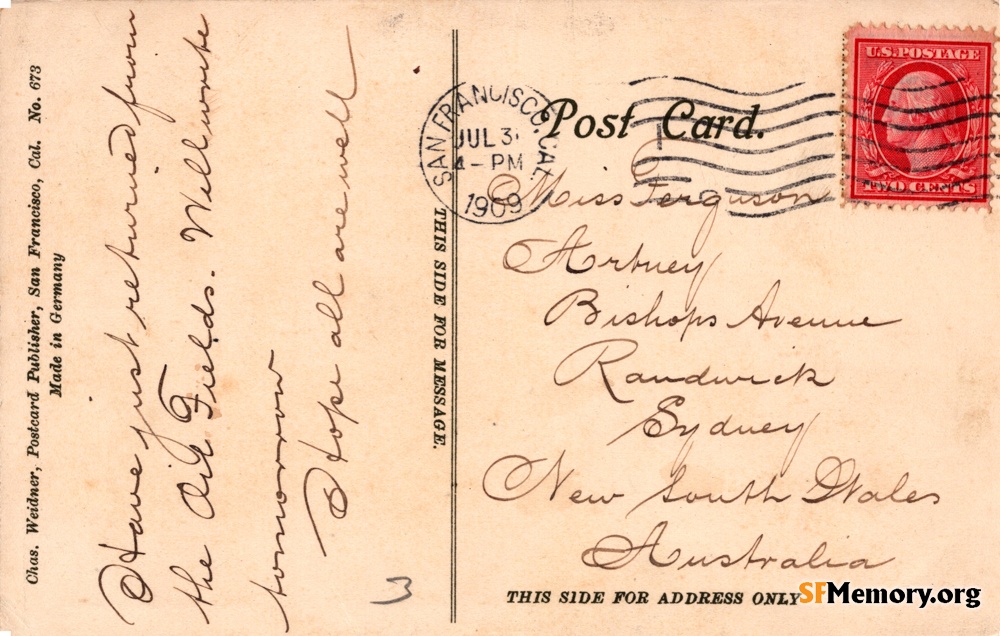 Chas. Weidner, Postcard Publisher, San Francisco, Cal. No. 673
Made in Germany
Have just returned from
the Oil Fields. Will write
tomorrow
Hope all are well
3
THIS SIDE FOR MESSAGE.
Post Card.
SAN FRANCISCO, CAL.
JUL 3
4-PM
1909
U.S. POSTAGE
TWO CENTS
Miss Ferguson
Artney
Bishops Avenue
Randwick
Sydney
New South Wales
Australia
THIS SIDE FOR ADDRESS ONLY
SFMemory.org